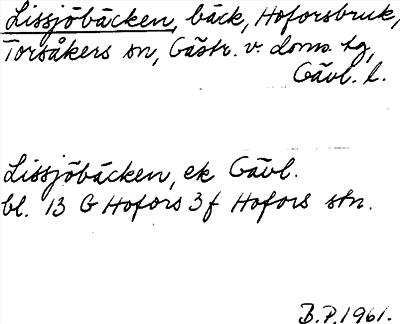 Lissjöbäcken, bäck, Hoforsbruk,
Torsåkers sn, Gästr. v. doms. tg,
Gävl. l.
Lissjöbäcken, ek Gävl.
bl. 13 G Hofors 3 f Hofors stn.
B.P. 1961.